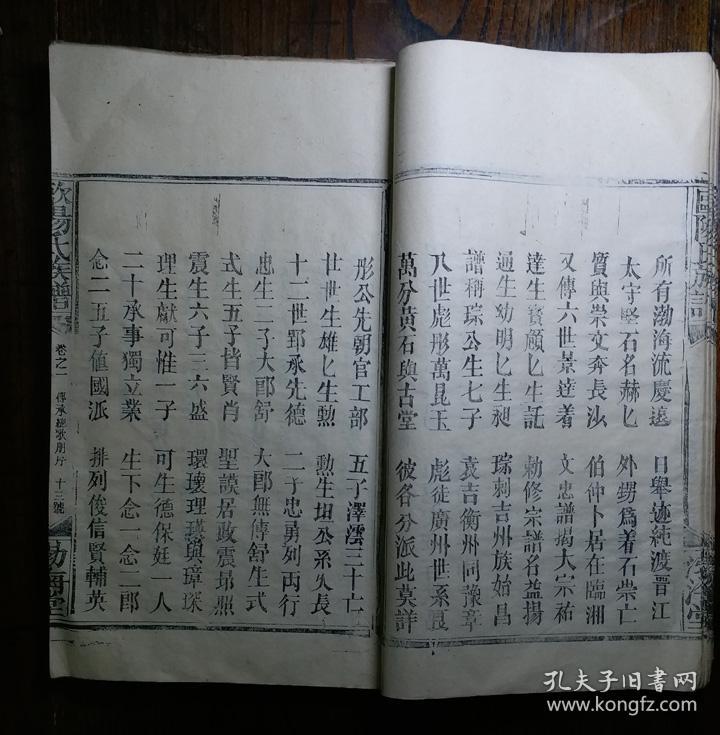 歐陽氏族譜
渤海堂
所有渤海流慶遠 日舉迹純渡晉江
太守堅石名赫乚 外甥爲着石崇亡
質與崇文奔長沙 伯仲卜居在臨湘
又傳六世景達着 文忠譜揭大宗祐
達生寳頠乚生託 勅修宗譜名益揚
生幼明乚生昶 琮刺吉州族始昌
譜稱琮公生七子 袁吉衡州同豫章
八世彪彤萬昆玉 彪徒廣州世系良
萬分黃石與古堂 彼各分派此莫詳
彤公先朝官工部 五子澤澐三十亡
世世生雄乚生勲 勲生坦公系久長
十二世郢承先德 二子忠勇列丙行
忠生二子大郎舒 大郎無傳舒生式
式生五子皆賢肖 聖謨居政震昴熙
震生六子三六盛 環瓌理璞與璋琛
理生獻可惟一子 可生德保娗一人
二十承事獨立業 生下念一念二郎
念二五子值國派 排列俊信賢輔英
歐陽氏族譜 卷之一 傳承總歌 序 十三號 渤海堂
孔夫子旧书网
www.kongfz.com